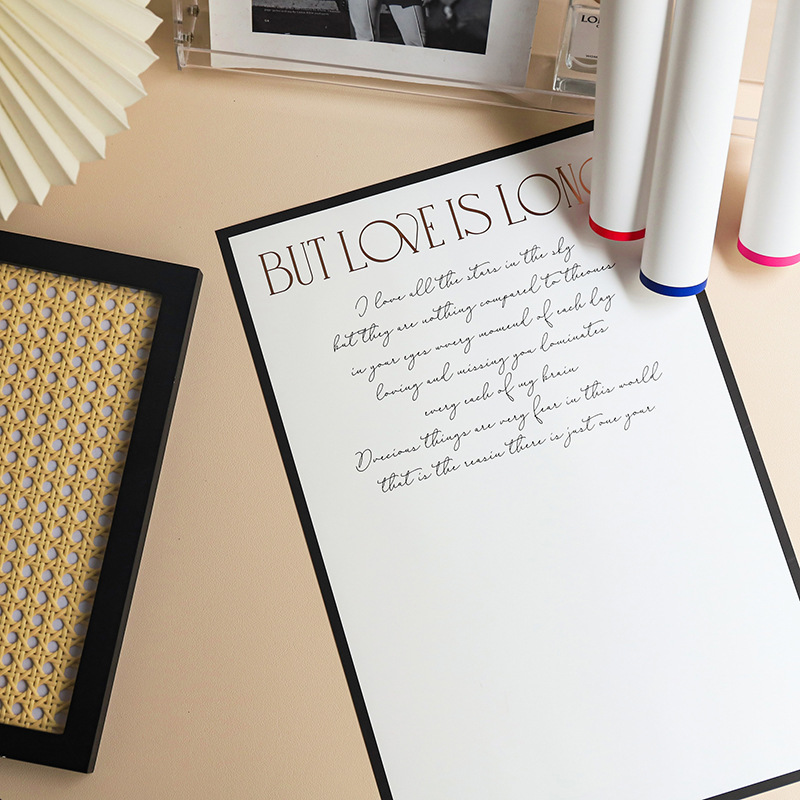 LO
BUT LOVE IS LONG
I love all the stars in the sky
but they are nothing compared to theones
in your eyes wvery momend of each day
loving and missing you lominates
every each of my brain
Dvecious things are very fear in this world
that is the reasin there is just one your